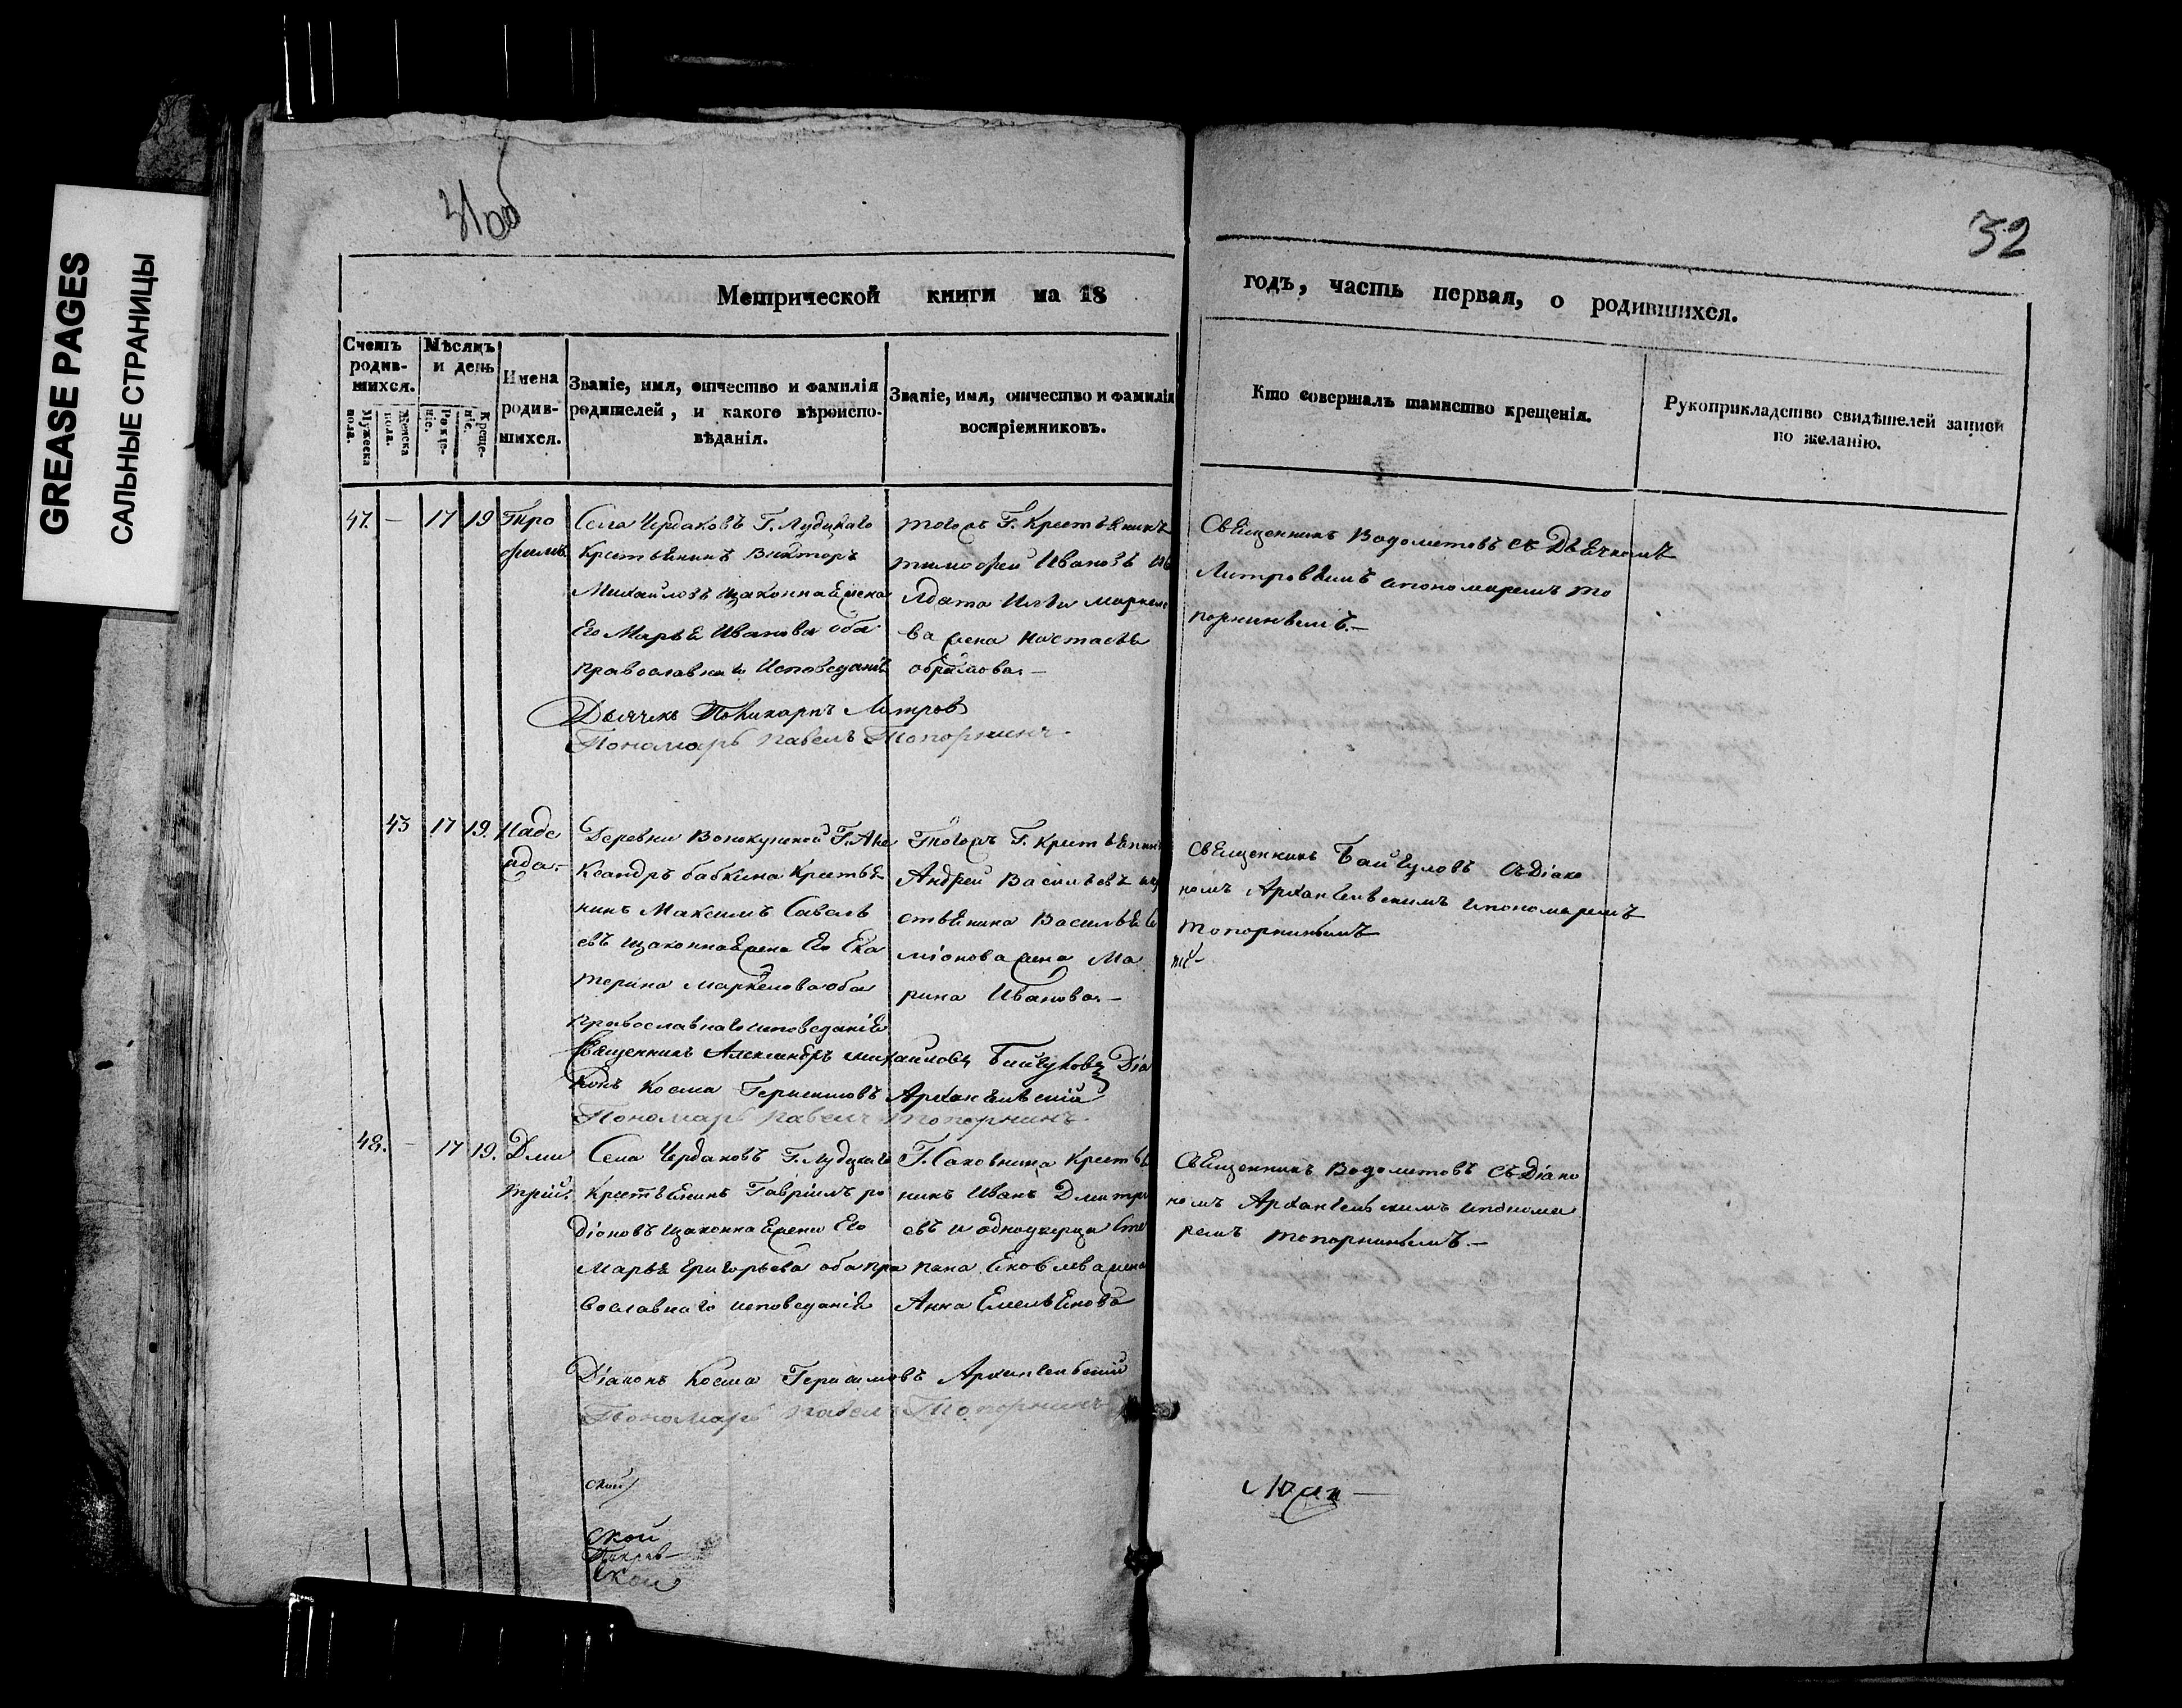 GREASE PAGES
САЛЬНЫЕ СТРАНИЦЫ
31об
32
Метрической книги на 18
годъ, часть первая, о родившихся.
Счетъ родив-шихся.
Мужеска пола.
Женска пола.
Мѣсяцъ и день
Рожде-ніе.
Креще-ніе.
Имена родив-шихся.
Званіе, имя, отчество и фамилія
родителей, и какого вѣроиспо-
вѣданія.
Званіе, имя, отчество и фамилія
воспріемниковъ.
Кто совершалъ таинство крещенія.
Рукоприкладство свидѣтелей записи
по желанію.
47. — 17 19 Тро
фимъ
Села Чердаковъ Г. Лудицкаго
крестьенинъ Викторъ
Михайловъ изаконная жена
Его Марья Иванова оба
православнаго Исповеданія
тогожъ Г. Крестьенинъ
тимофей Ивановъ
лдата Ильи маркело
ва жена Настасья
Священникъ Водометовъ съ Дьечкомъ
Литровымъ ипономаремъ то
порнинымъ.—
Дьячекъ Поликарпъ Литров
Пономарь павелъ Топорнинъ
43 17 19. Наде
жда.—
Деревни Г. Але
ксандръ бабкина Крестье
нинъ Максимъ Савель
евъ изаконная жена Его Ека
терина Маркелова оба
православнаго исповеданія
Тогожъ Г. крестьенинъ
Андрей Васильевъ икр
стьенина Василья Се
міонова жена Ма
рина Иванова.—
Священникъ Байгуловъ съ Діако
номъ Архангельскимъ ипономаремъ
Топорнинымъ
Священникъ Александръ михайловъ Байгуловъ Діа
конъ Косма Герасимовъ Архангельскій
Пономарь павелъ топорнинъ
48. — 17 19. Дми
трій.
Села Чердаковъ Г. Лудицкаго
крестьенинъ Гавріилъ ро
діоновъ изаконна жена Его
Марья григорьева оба пра
вославнаго исповеданія
Г. Саковнина Крестье
нинъ Иванъ Дмитри
евъ и однодворца Сте
пана Ековлева жена
Анна Емельенова
Священникъ Водометовъ съ Діако
номъ Архангельскимъ ипонома
ремъ топорнинымъ.—
Діаконъ Косма Герасимовъ Архангельскій
Пономарь павелъ Топорнинъ
ской
ской